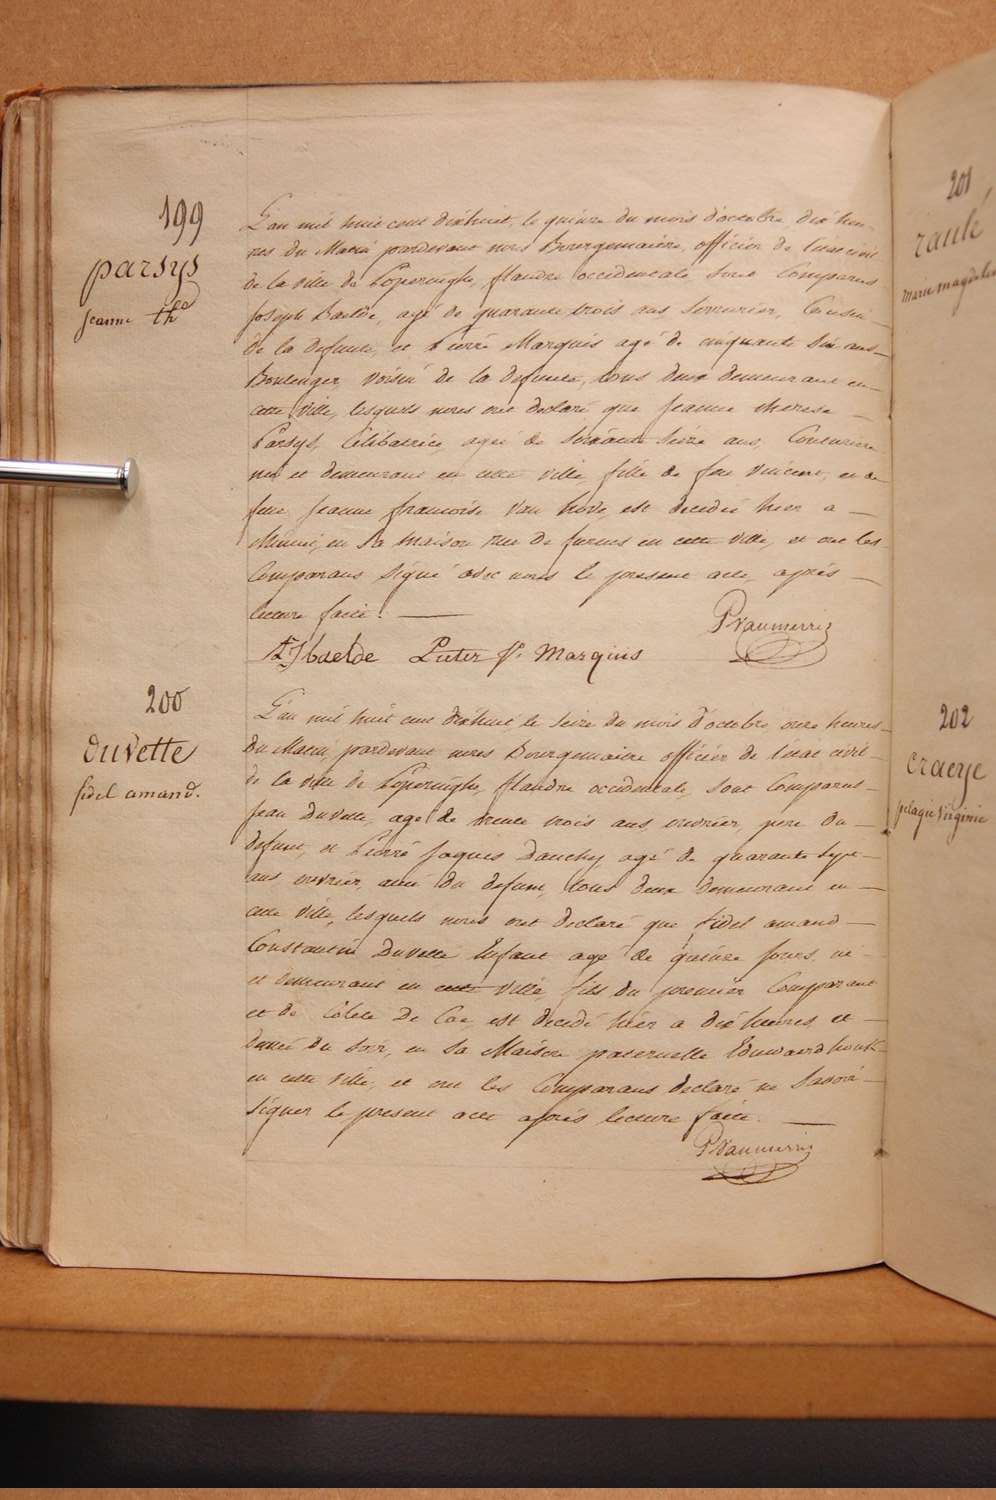 199
parsys
jeanne th.
L'an mil huit cent dixhuit, le quinze du mois d'octobre, dix heu-
res du Matin pardevant nous Bourgemaitre, officier de l'état civil
de la ville de Poperinghe, flandre occidentale, sont Comparus
Joseph Baelde, agé de quarante trois ans serrurier, Cousin
de la defunte, et Pierre Marquis agé de cinquante six ans
Boulenger, voisin de la defunte, tous deux demeurant en
cette ville, lesquels nous ont declaré que Jeanne therese
Parsys, Célibatrice, agée de soixante seize ans, Couturiere
née et demeurant en cette ville, fille de feu vincent, et de
feue Jeanne francoise Van hove, est decedée hier a
Minuit, en sa maison rue de furnes en cette ville, et ont les
Comparans signé avec nous le present acte, aprés
lecture faite.
PVanmerris
Jbaelde Pieter f. Marquis
200
duvette
fidel amand.
L'an mil huit cent dixhuit le seize du mois d'octobre, onze heures
du Matin, pardevant nous Bourgemaitre officier de l'etat civil
de la ville de Poperinghe, flandre occidentale, sont Comparus
Jean Duvette, agé de trente trois ans, ouvrier, pere du
defunt, et Pierre Jaques Dauchy agé de quarante sept
ans ouvrier, ami du defunt, tous deux demeurant en
cette ville, lesquels nous ont declaré que fidel amand
Constantin Duvette Enfant agé de quinze jours, né
et demeurant en cette ville, fils du premier Comparant
et de Colete De Coe, est decedé hier a dix heures et
demie du soir, en sa Maison paternelle
en cette ville, et ont les Comparans declaré ne savoir
signer le present acte aprés lecture faite.
PVanmerris
201
raulé
marie magdelen
202
craeye
pelagie virginie